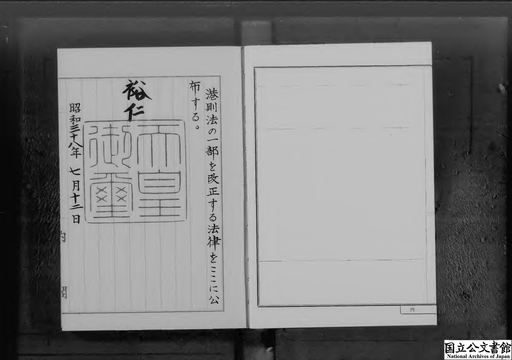 港則法の一部を改正する法律をここに公
布する。
裕仁
天皇
御璽
昭和三十八年 七月十二日
内
閣
内
国立公文書館
National Archives of Japan